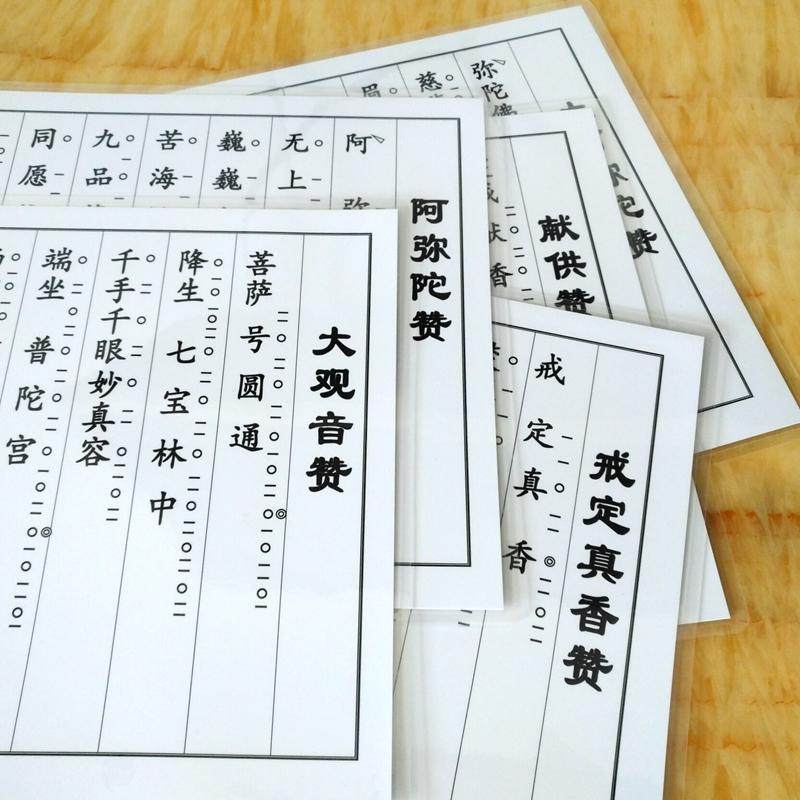 大观音赞
菩萨号圆通
降生七宝林中
千手千眼妙真容
端坐普陀宫
阿弥陀赞
阿弥
无上
巍巍
苦海
九品
同愿
戒定真香赞
戒定真香
献供赞
献香
陀赞
弥陀佛
慈
眉